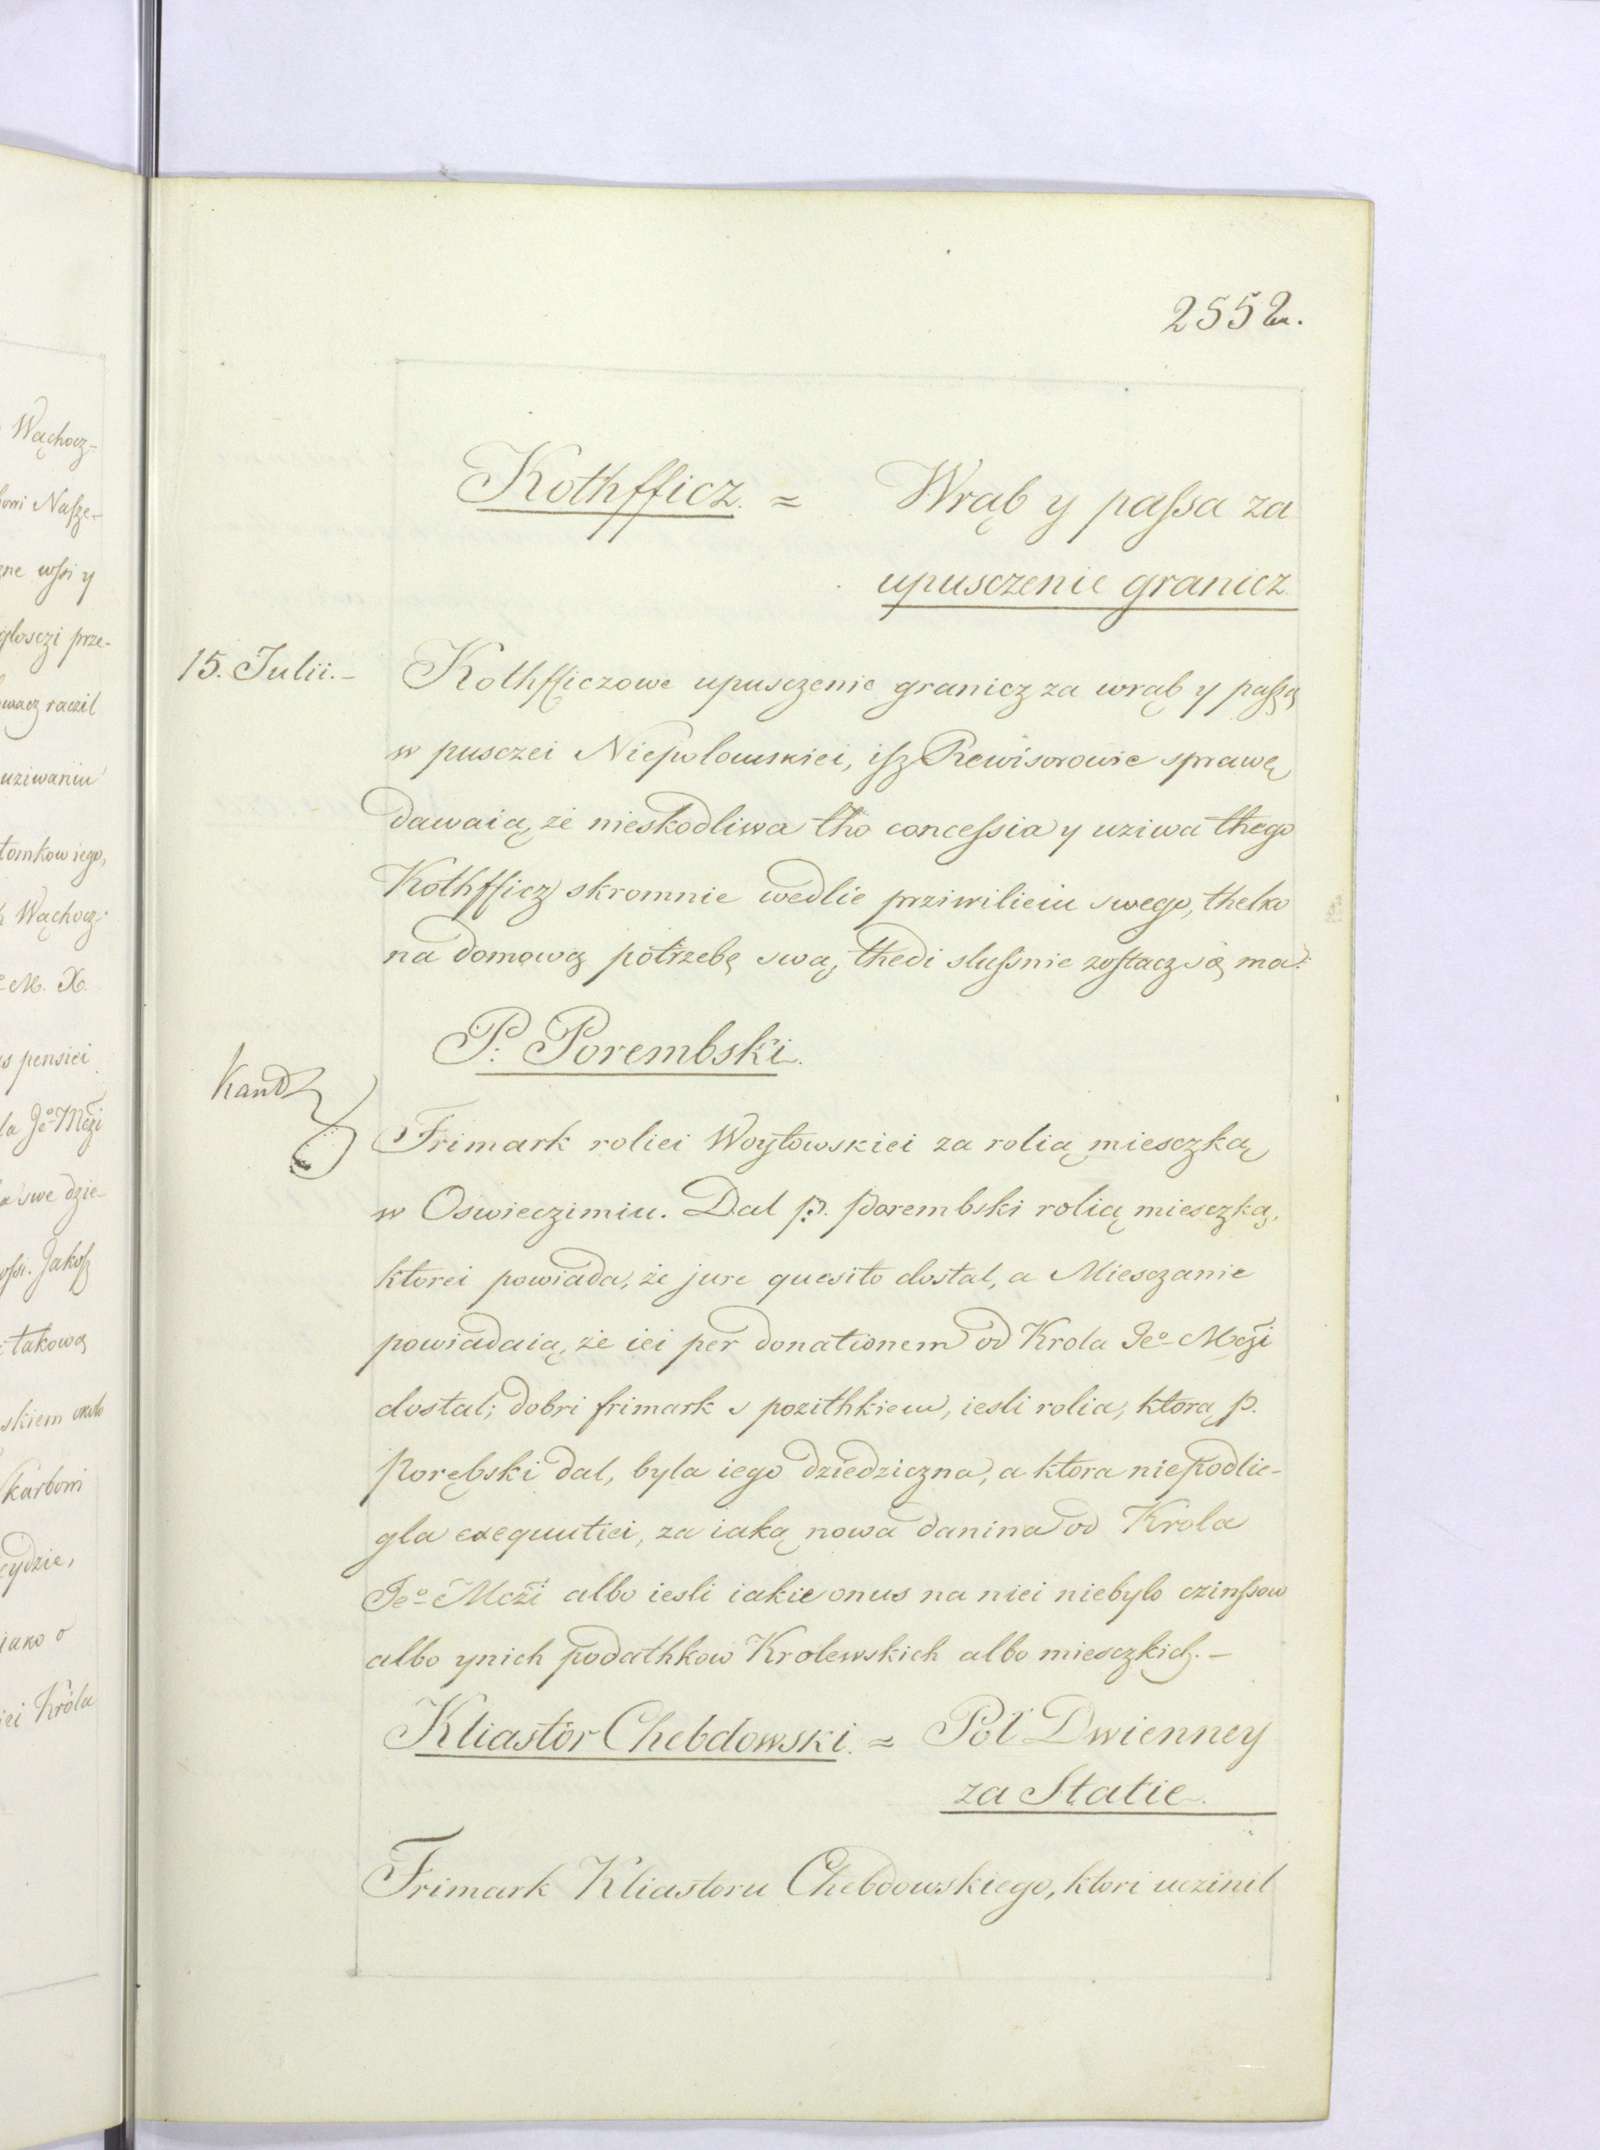 2552.
Kothfficz. = Wrąb y passa za
upusczenie granicz
15. Julii. – Kothfficzowe upusczenie granicz za wrąb y passą
w pusczei Niepolomskiei, isz Rewisorowie sprawę
dawaią, że nieskodliwa tho concessia y uziwa thego
Kothfficz skromnie wedlie prziwilieiu swego, thelko
na domową potrzebę swą, thedi slussnie zostacz się ma.
P. Porembski.
Frimark roliei Woytowskiei za rolią miesczką
w Oswieczimiu. Dal p. Porembski rolią miesczką,
ktorei powiada, że jure quesito dostal, a Miesczanie
powiadaią, że iei per donationem od Krola Jeo Mczi
dostal; dobri frimark s pozithkiem, iesli rolia, ktorą p.
Porębski dal, byla iego dziedziczna, a ktora niepodlie-
gla exequutiei, za iaką nowa danina od Krola
Jeo Mczi albo iesli iakie onus na niei niebylo czinssow
albo ynich podathkow Krolewskich albo miesczkich. –
Kliastor Chebdowski. = Pol Dwienney
za Statie.
Frimark Kliastoru Chebdowskiego, ktori uczinil
Wąchocz-
Nasze-
wsi y
prze-
raczil
uziwaniu
Wąchocz-
M. X.
pensiei
la Jeo Mczi
swe dzie-
Jakosz
takową
skiem
iako o
Króla